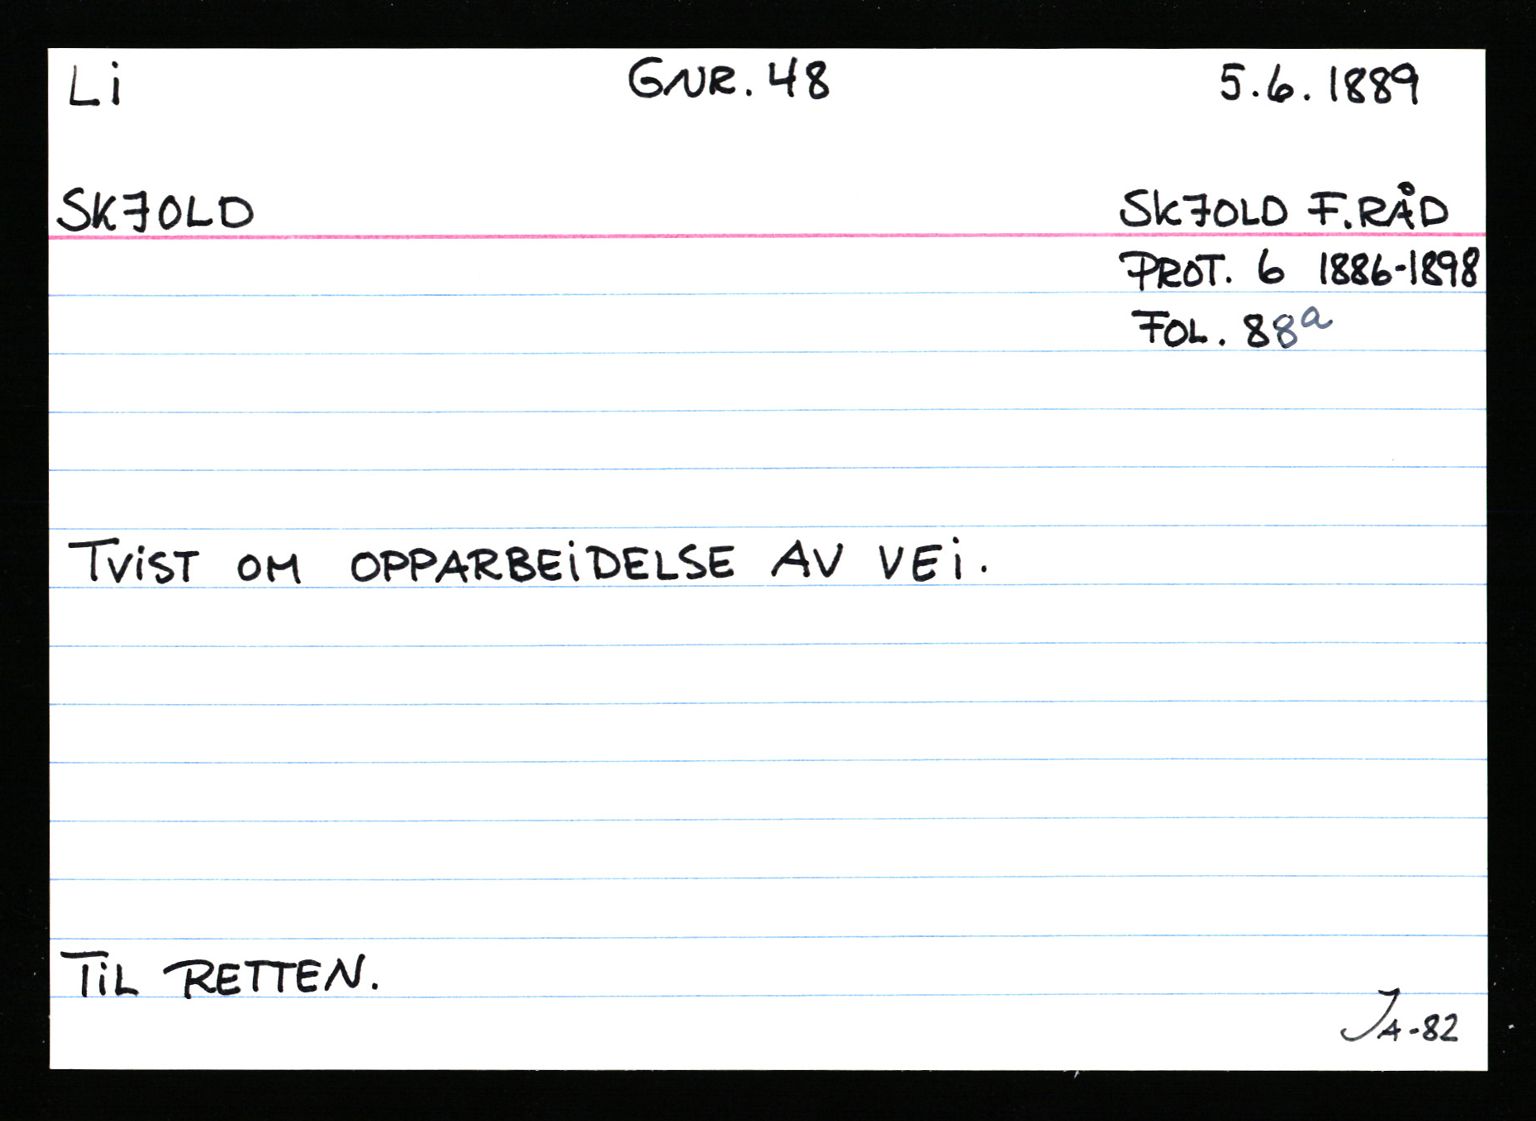 Li GNR. 48 5.6.1889
SKJOLD SKJOLD F.RÅD
PROT. 6 1886-1898
FOL. 88a
TViST OM OPPARBEiDELSE AV VEi.
TiL RETTEN.
JA-82